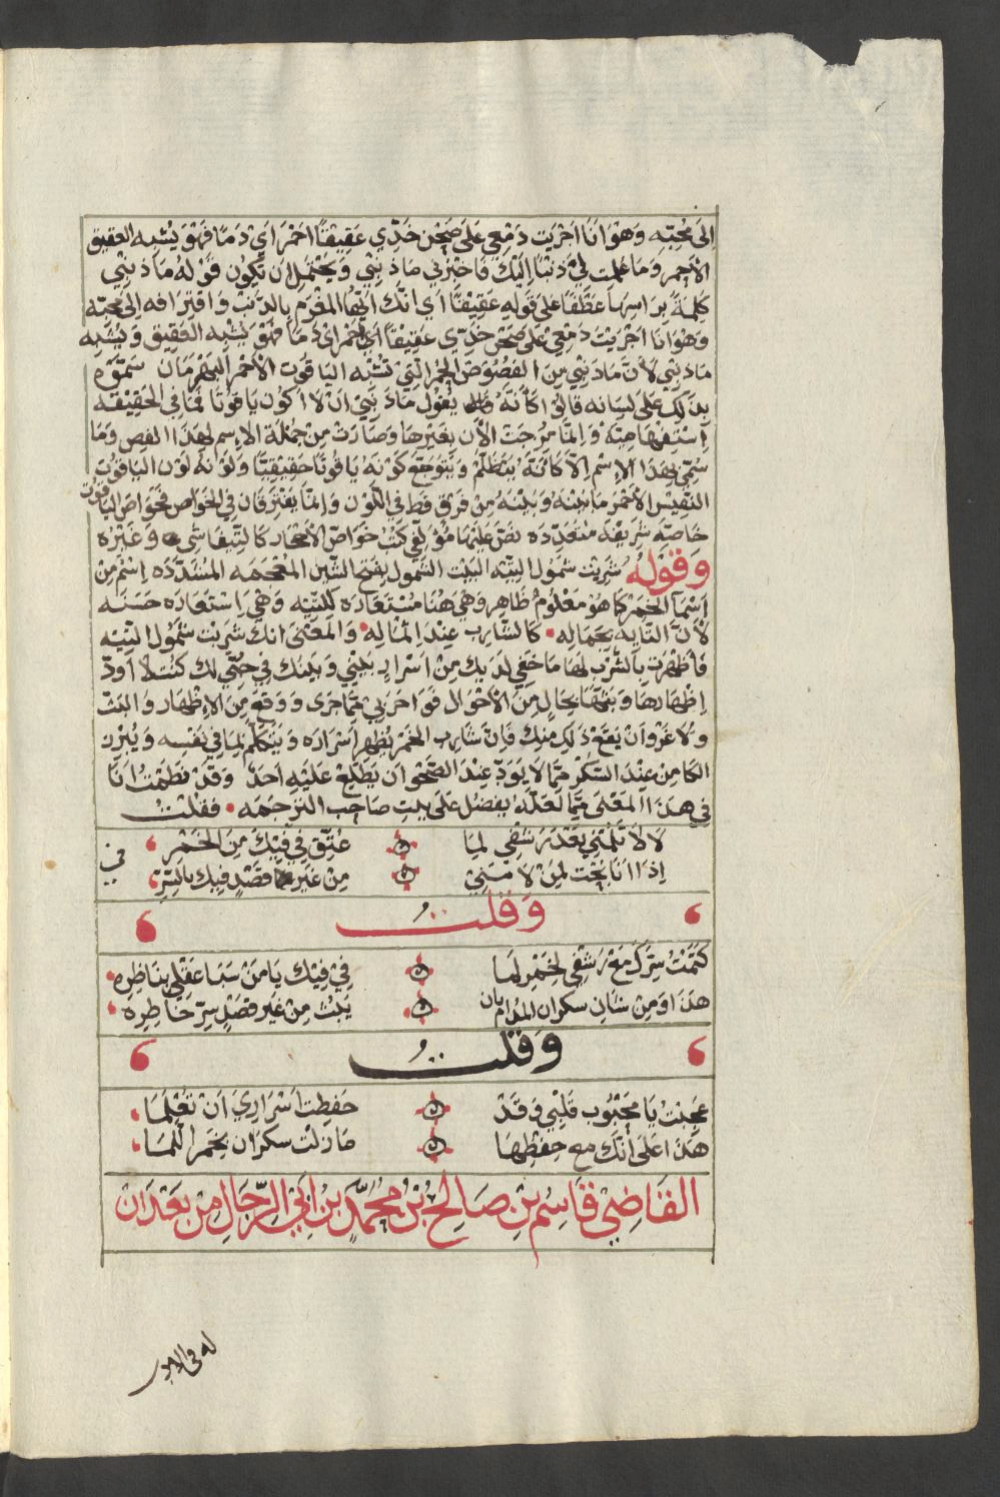 الى محبته وهو انا اجريت دمعي على صحن خدي عقيقا احمر اي دما فهو يشبه العقيق
الاحمر وما علمت لي ذنبا اليك فاخبرني ما ذنبي ويحتمل ان يكون قوله ما ذنبي
كلمة براسها عطفا على قوله عقيقا اي انك ايها المغرم بالذنب واقترافه الى محبته
وهو انا اجريت دمعي على صحن خدي عقيقا اي احمر اي دما فهو يشبه العقيق ويشبه
ماذنبي لان ماذنبي من الفصوص الحمر التي تشبه الياقوت الاحمر البهرمان سموه
بذلك على لسانه قالوا كانه يقول ماذنبي ان لا اكون ياقوتا فما في الحقيقة
استفهامية وانما مزجت الان بغيرها وصارت من جملة الاسم لهذا الفص وما
سمي بهذا الاسم الا كانه يتظلم ويتوجع كونه ياقوتا حقيقيا ولونه لون الياقوت
النفيس الاحمر ما بينه وبينه من فرق قط في اللون وانما يفترقان في الخواص فخواص الياقوت
خاصة شريفة متعددة نص عليها مؤلفي كتب خواص الاحجار كالتيفاشي وغيره
وقوله شربت شمول التيه البيت الشمول بفتح الشين المعجمه المشدده اسم من
اسما الخمر كما هو معلوم ظاهر وهي هنا مستعارة للتيه وهي استعاره حسنه
لان التايه بجماله كالشارب عند امثاله والمعنى انك شربت شمول التيه
فاظهرت بالشرب لها ما خفي لديك من اسرار بيني وبينك في حبي لك كنت لا اود
اظهارها وبثها بحال من الاحوال فواحربي مما جرى ووقع من الاظهار والبث
ولا غرو ان يقع ذلك منك فان شارب الخمر يظهر اسراره ويتكلم بما في نفسه ويبرز
الكامن عند السكر مما لا يود عند الصحو ان يطلع عليه احد وقد نظمت انا
في هذا المعنى مما لعله يفضل على بيت صاحب الترجمه فقلت
لا لا تلمني بعد رشفي لما عتق في فيك من الخمر
اذا انا بحت لمن لامني من غير ما قصد فيك بالسر
في
وقلت
كتمت سرك مع رشفي لخمر لما في فيك يا من سبا عقلي بناظره
هذا ومن شان سكران المدام بان يبث من غير قصد سر خاطره
وقلت
عجبت يا محبوب قلبي وقد حفظت اسراري ان تعلما
هذا على انك مع حفظها ما زلت سكران بخمر اللما
القاضي قاسم بن صالح بن محمد بن ابي الرجال من بعد ان